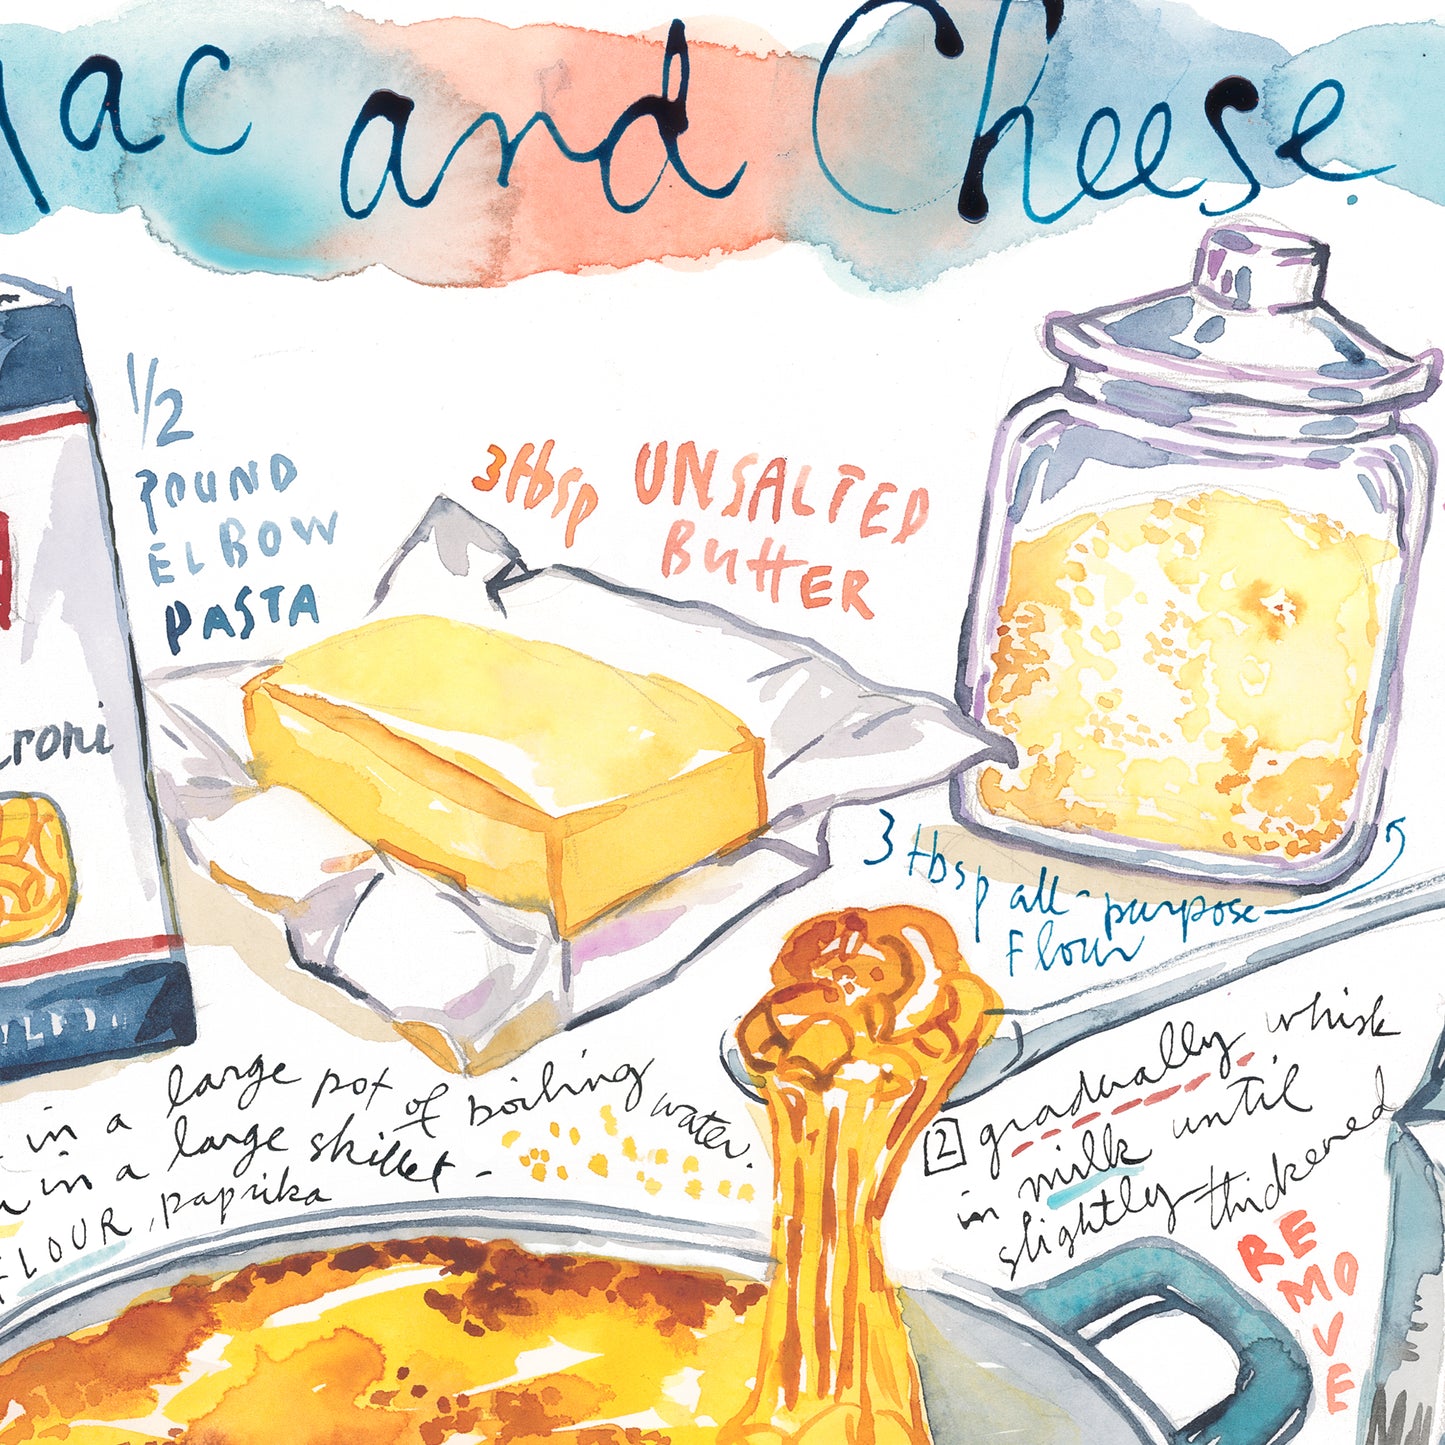 Mac and Cheese.
1/2
POUND
ELBOW
PASTA
3 tbsp UNSALTED
ButtER
roni
3 tbsp all-purpose
Flour
in a large pot of boiling water.
in a large skillet -
FLOUR, paprika
2 gradually whisk
in milk until
slightly thickened
REMOVE